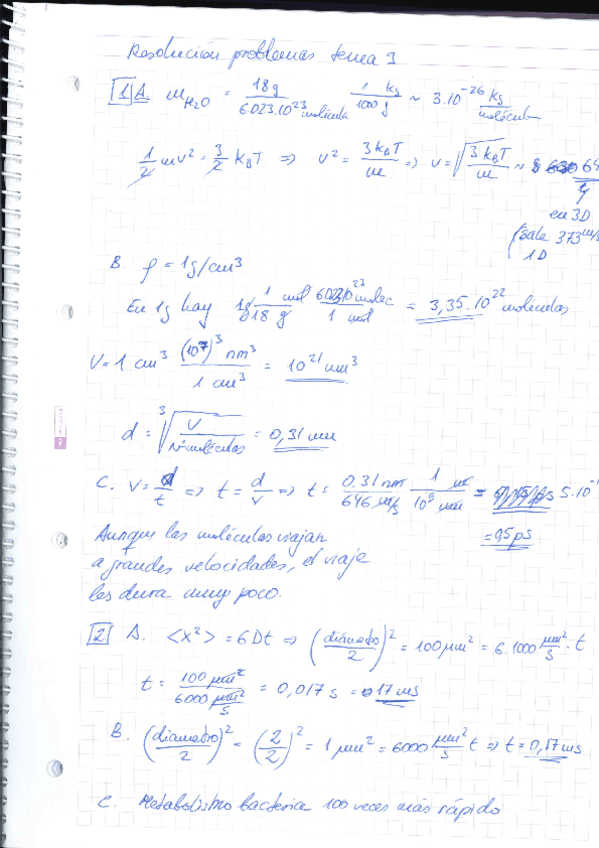 Resolución problemas tema 1
1 A. m_H2O = 18g / 6.023.10^23 molécula 1 kg / 1000 g ~ 3.10^-26 kg / molécula
1/2 mv² = 3/2 k_B T ⇒ v² = 3k_B T / m ⇒ v = √(3k_B T / m) ~ 64
en 3D
(sale 373 m/s
1D
B. ρ = 1g/cm³
En 1g hay 1g 1 mol / 18 g 6.023.10^23 molec / 1 mol = 3,35.10^22 moléculas
V = 1 cm³ (10^7)³ nm³ / 1 cm³ = 10^21 nm³
d = ³√(V / Nº moléculas) = 0,31 nm
C. v = d/t ⇒ t = d/v ⇒ t = 0.31 nm / 646 m/s 1 m / 10^9 nm = 5.10^-1
= 0,5 ps
Aunque las moléculas viajan
a grandes velocidades, el viaje
les dura muy poco.
2 A. <x²> = 6Dt ⇒ (diámetro / 2)² = 100 µm² = 6.1000 µm²/s · t
t = 100 µm² / 6000 µm²/s = 0,017 s = 17 ms
B. (diámetro / 2)² = (2/2)² = 1 µm² = 6000 µm²/s t ⇒ t = 0,17 ms
C. Metabolismo bacteria 100 veces más rápido